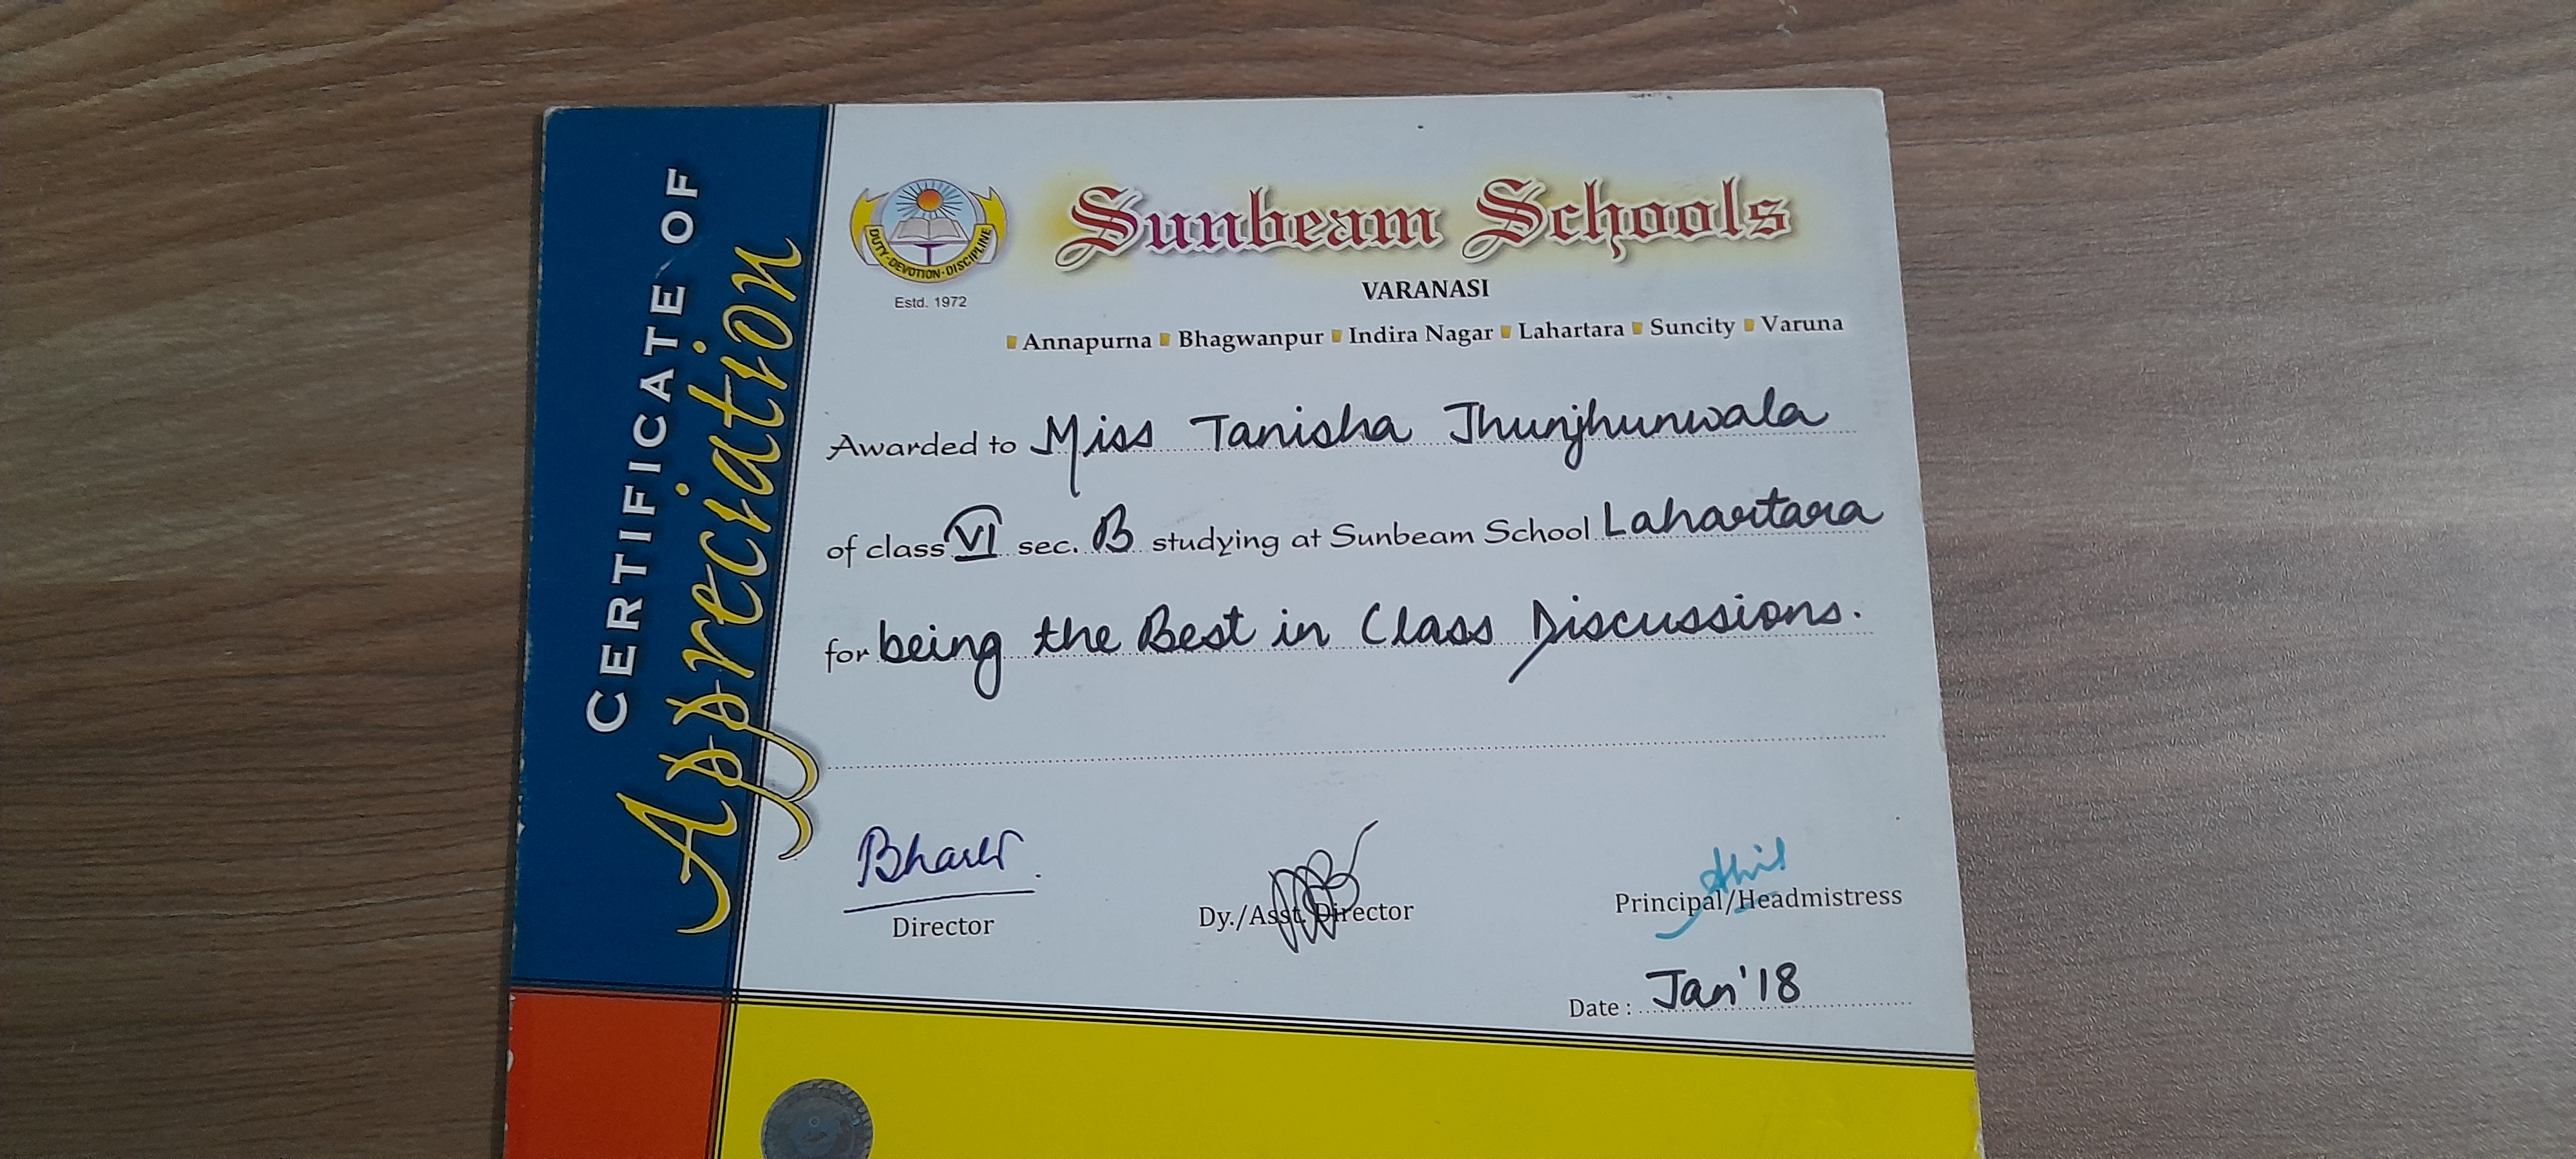 CERTIFICATE OF
Appreciation
DUTY·DEVOTION·DISCIPLINE
Estd. 1972
Sunbeam Schools
VARANASI
Annapurna Bhagwanpur Indira Nagar Lahartara Suncity Varuna
Awarded to Miss Tanisha Jhunjhunwala
of class VI sec. B studying at Sunbeam School Lahartara
for being the Best in Class Discussions.
Director Dy./Asst. Director Principal/Headmistress
Date : Jan'18